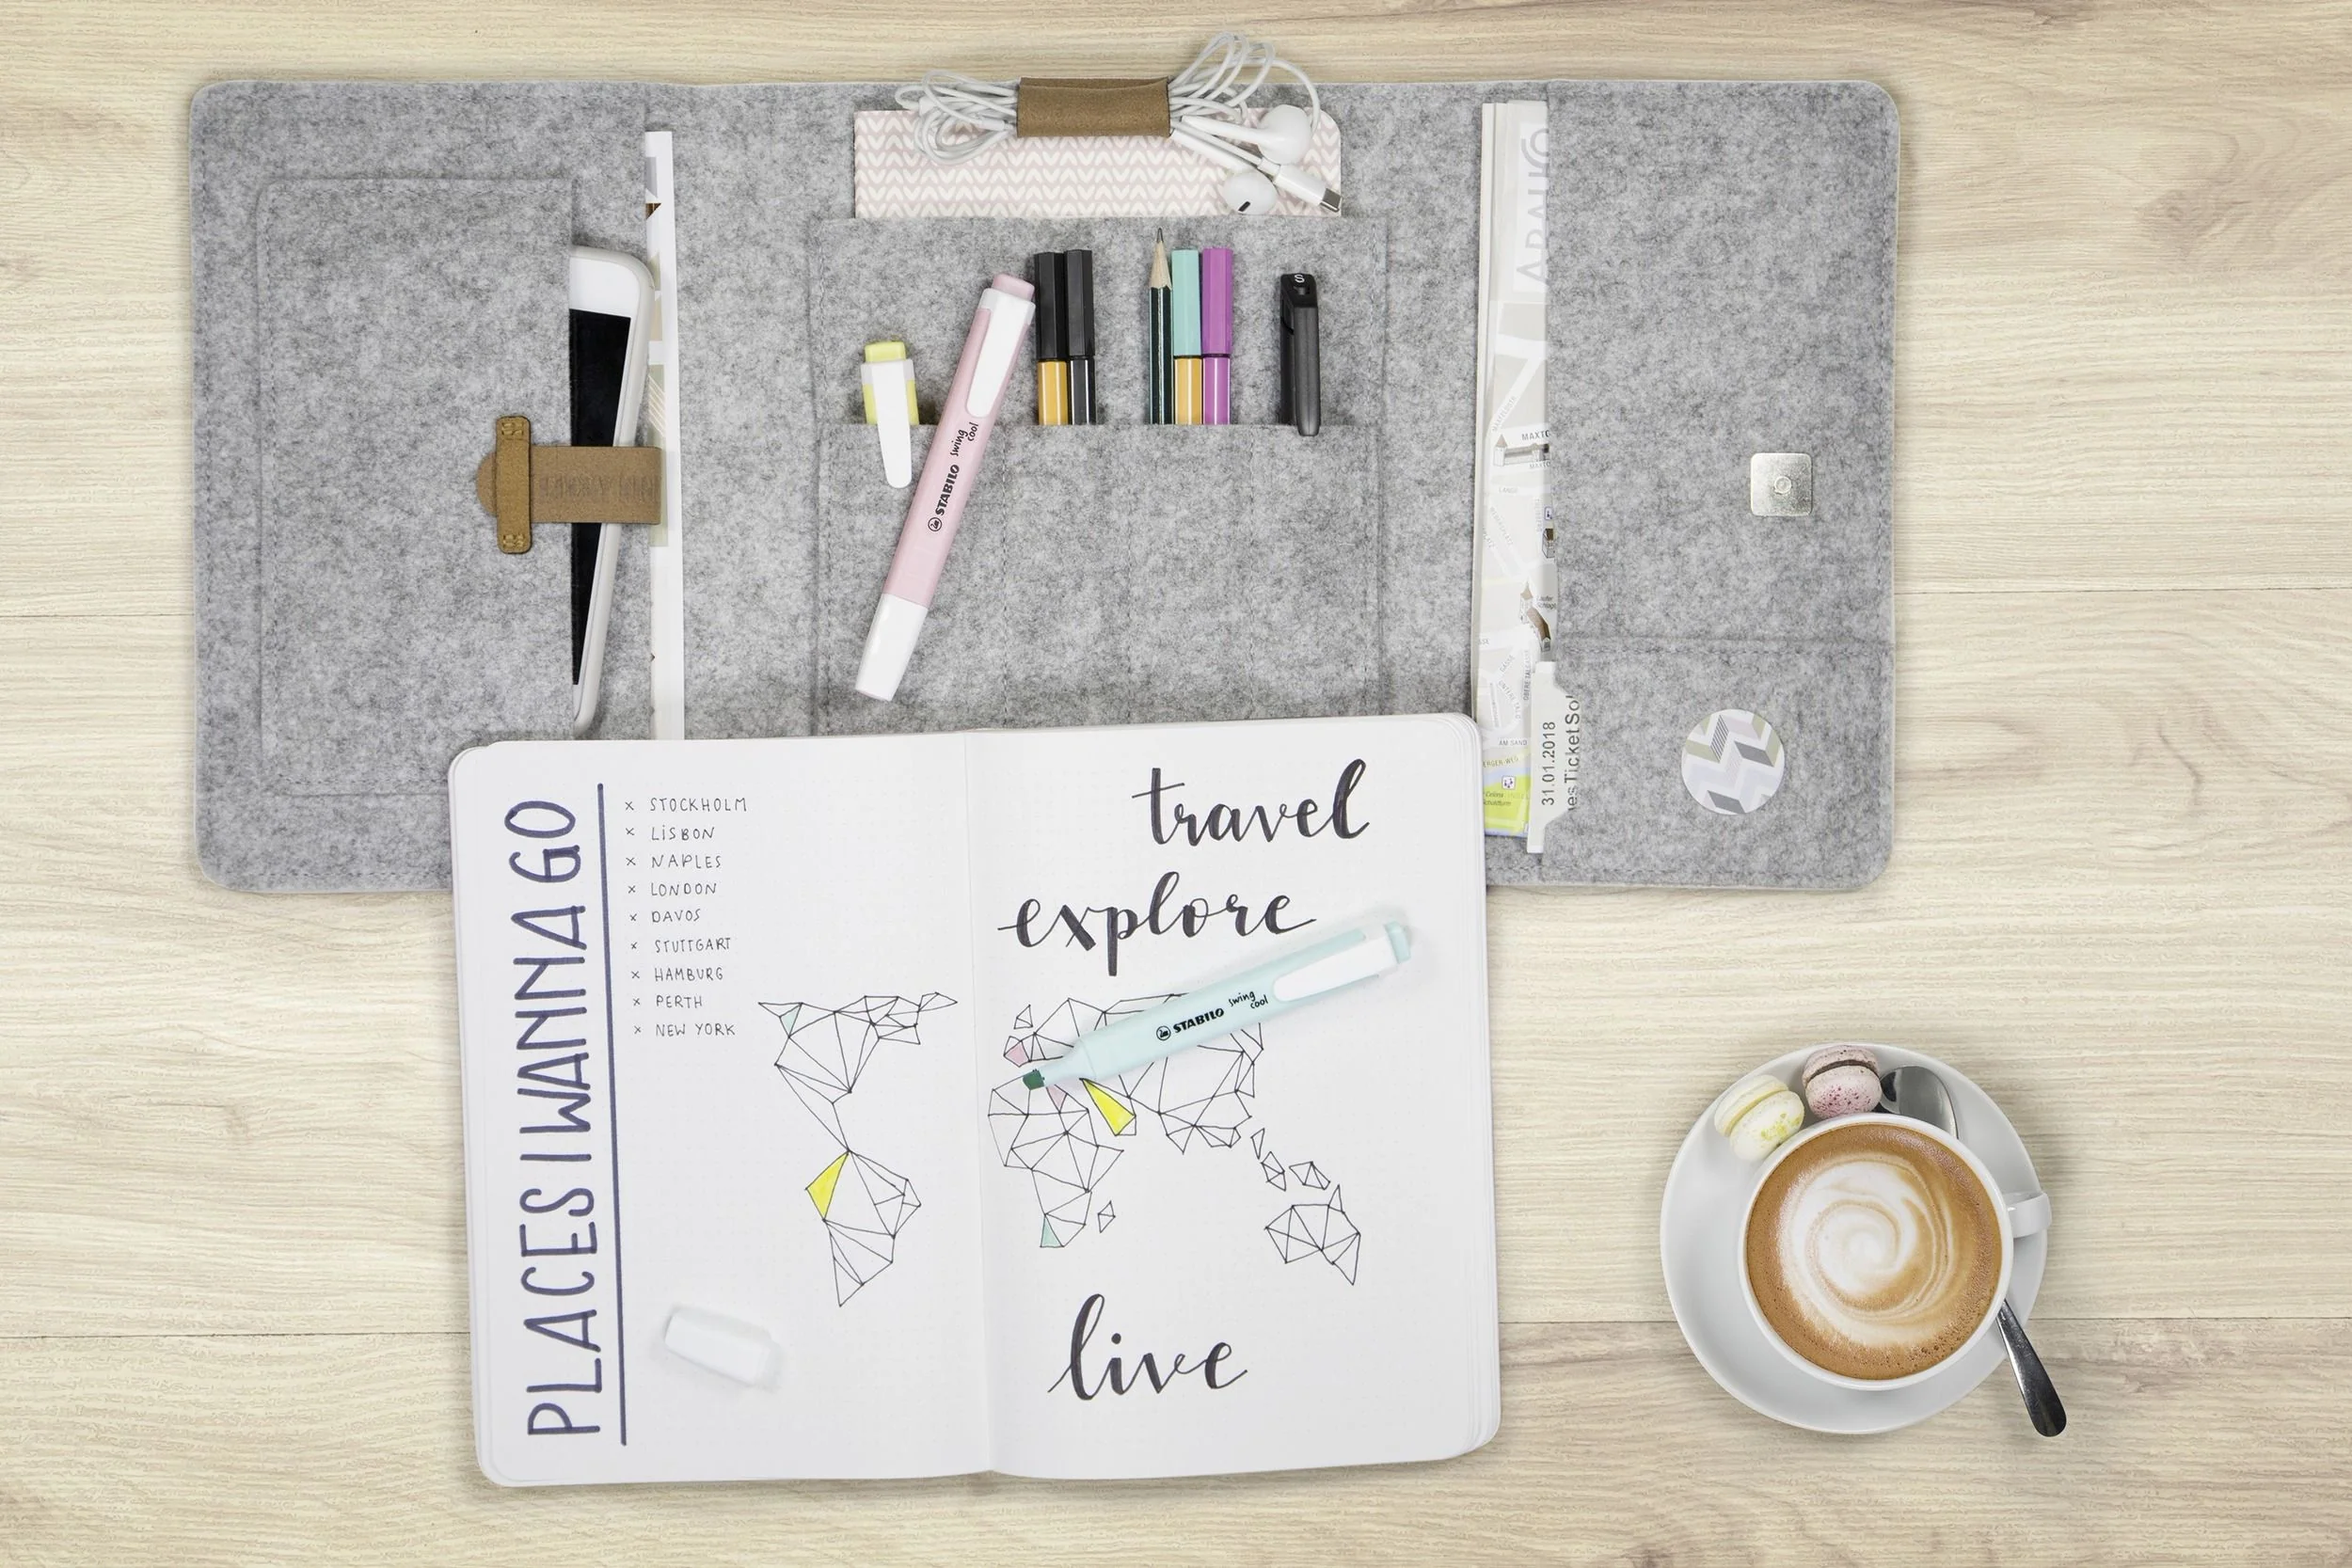 STABILO swing cool
31.01.2018
PLACES I WANNA GO
x STOCKHOLM
x LISBON
x NAPLES
x LONDON
x DAVOS
x STUTTGART
x HAMBURG
x PERTH
x NEW YORK
travel
explore
STABILO swing cool
live